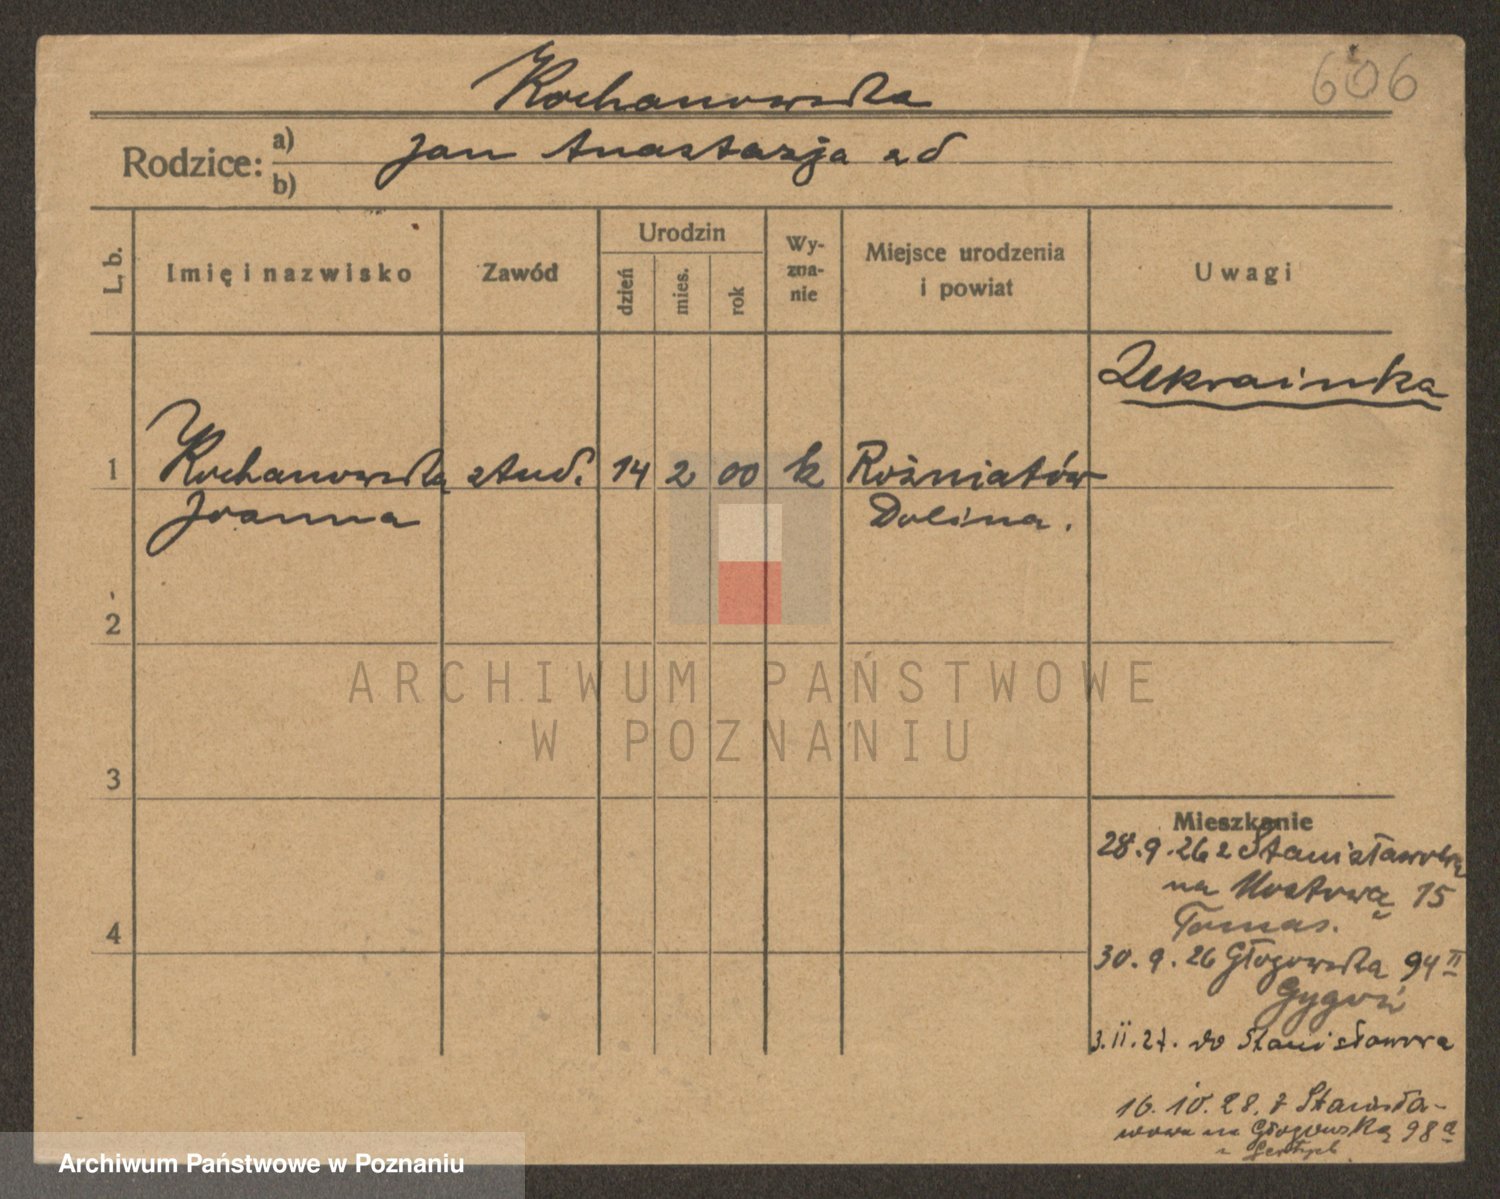 606
Kochanowska
Rodzice: a) b)
Jan Anastazja
L. b.
Imię i nazwisko
Zawód
Urodzin
dzień
mies.
rok
Wy-
zna-
nie
Miejsce urodzenia
i powiat
Uwagi
Ukrainka
1 Kochanowska stud. 14 2 00 k Rożniatów
Joanna Dolina.
2
3
4
Mieszkanie
28.9.26 z Stanisławowa
na Mostową 15
Tomas.
30.9.26 Głogowska 94 II
3.II.27. do Stanisławowa
16.10.28. z Stanisła-
wowa na Głogowską 98a
ARCHIWUM PAŃSTWOWE
W POZNANIU
Archiwum Państwowe w Poznaniu